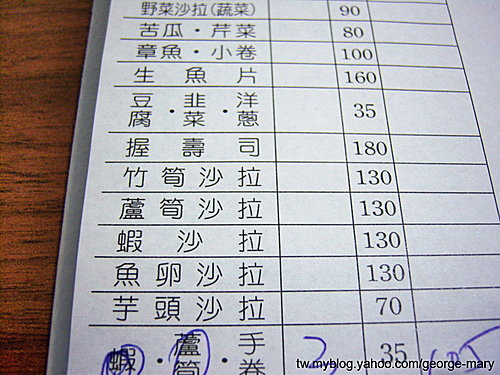 野菜沙拉(蔬菜) 90
苦瓜・芹菜 80
章魚・小卷 100
生魚片 160
豆腐・韭菜・洋蔥 35
握壽司 180
竹筍沙拉 130
蘆筍沙拉 130
蝦沙拉 130
魚卵沙拉 130
芋頭沙拉 70
蝦・蘆筍・手卷 35
tw.myblog.yahoo.com/george-mary